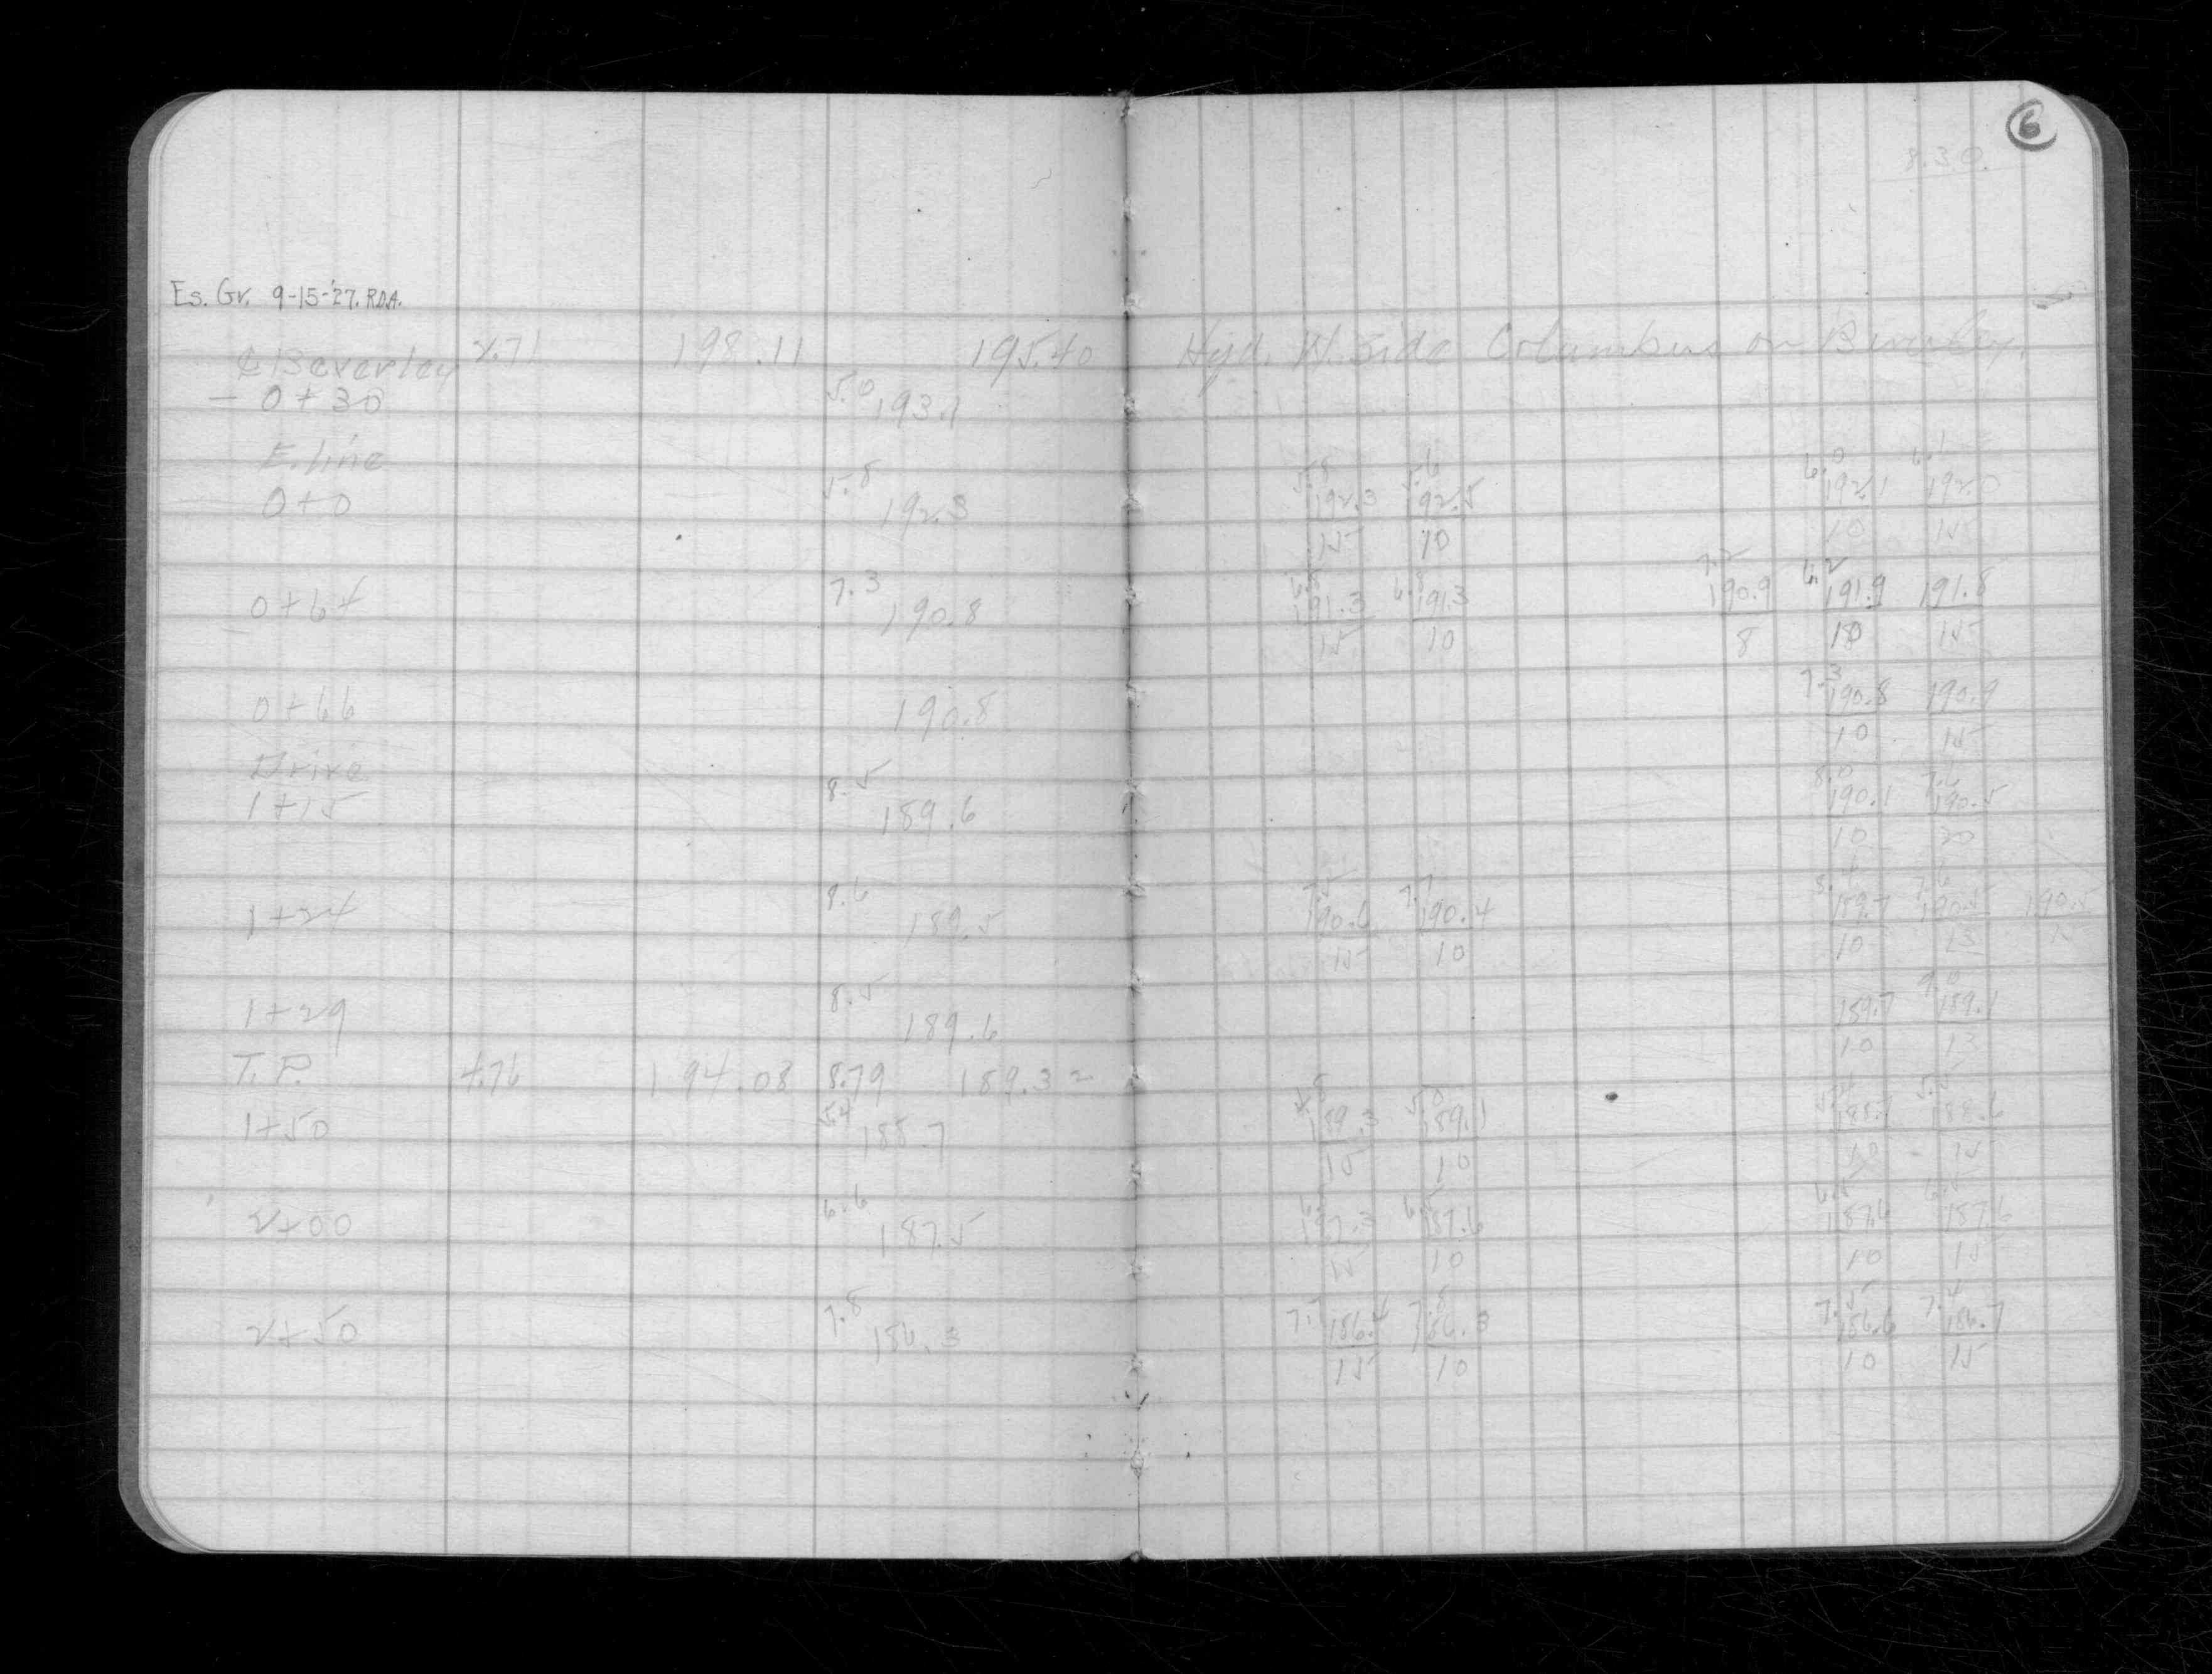 6
8.30.
Es. Gr. 9-15-'27. R.D.A.
¢ Beverley 2.71 198.11 195.40 Hyd. W. Side Columbus on Beverley.
- 0+30 5.0 193.1
E. line
5.8 5.8 5.6 6.0 6.1
0+0 192.3 192.3 192.5 192.1 192.0
15 10 10 15
7.3 6.8 6.8 7.2 6.2
0+64 190.8 191.3 191.3 190.9 191.9 191.8
15 10 8 10 15
7.3
0+66 190.8 190.8 190.9
10 15
Drive 8.5 8.0 7.6
1+15 189.6 190.1 190.5
10 20
8.6 7.5 7.7 8.4 7.6
1+24 189.5 190.6 190.4 189.7 190.5 190.5
15 10 10 13 15
8.5 9.0
1+29 189.6 189.7 189.1
10 13
T.P. 4.76 194.08 8.79 189.32
5.4 4.8 5.0 5.4 5.5
1+50 188.7 189.3 189.1 188.7 188.6
15 10 10 15
6.6 6.5 6.5 6.5
2+00 187.5 187.3 187.6 187.6 187.6
15 10 10 15
7.8 7.7 7.8 7.5 7.4
2+50 186.3 186.4 186.3 186.6 186.7
15 10 10 15